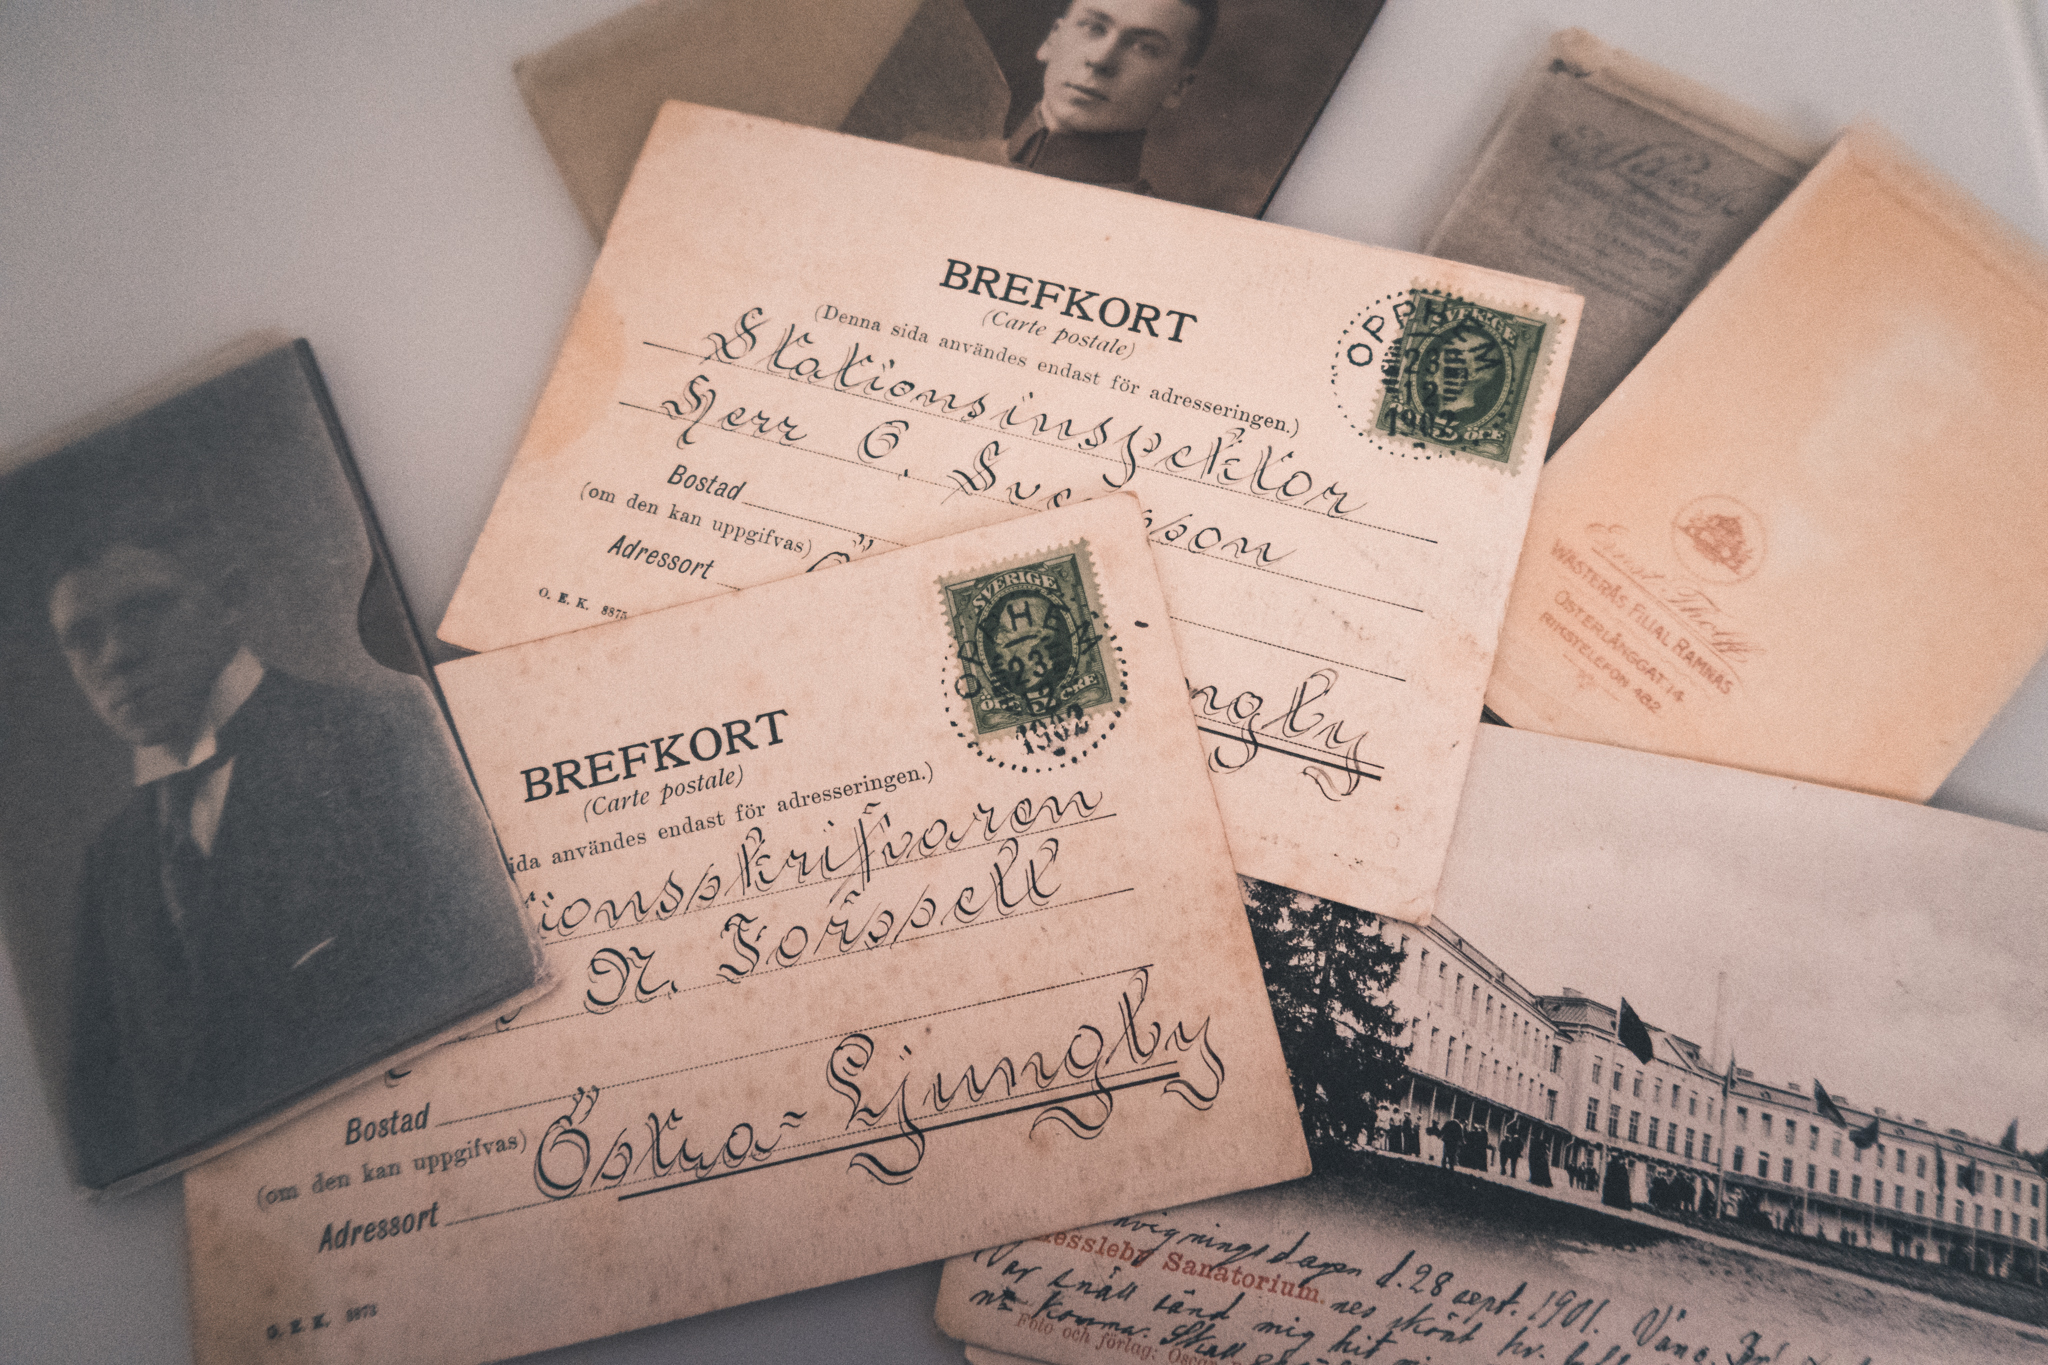 BREFKORT
(Carte postale)
(Denna sida användes endast för adresseringen.)
Stationsinspektor
Herr C. Sve sson
Bostad
(om den kan uppgifvas)
Adressort
ngby
O. E. K. 8875
OPPHEM
2
1902
SVERIGE
ÖRE
BREFKORT
(Carte postale)
ida användes endast för adresseringen.)
ionsskrifvaren
N. Forssell
Bostad
(om den kan uppgifvas)
Adressort
Östra-Ljungby
O. E. K. 8873
SVERIGE
OPPHEM
23
1902
Ernst Tholff
WÄSTERÅS FILIAL RAMNÄS
ÖSTERLÅNGGAT. 14
RIKSTELEFON 482
nvigningsdagen d. 28 sept. 1901.
essleby Sanatorium.
Var snäll sänd mig hit
komma. Skall
Foto och förlag: Oscar